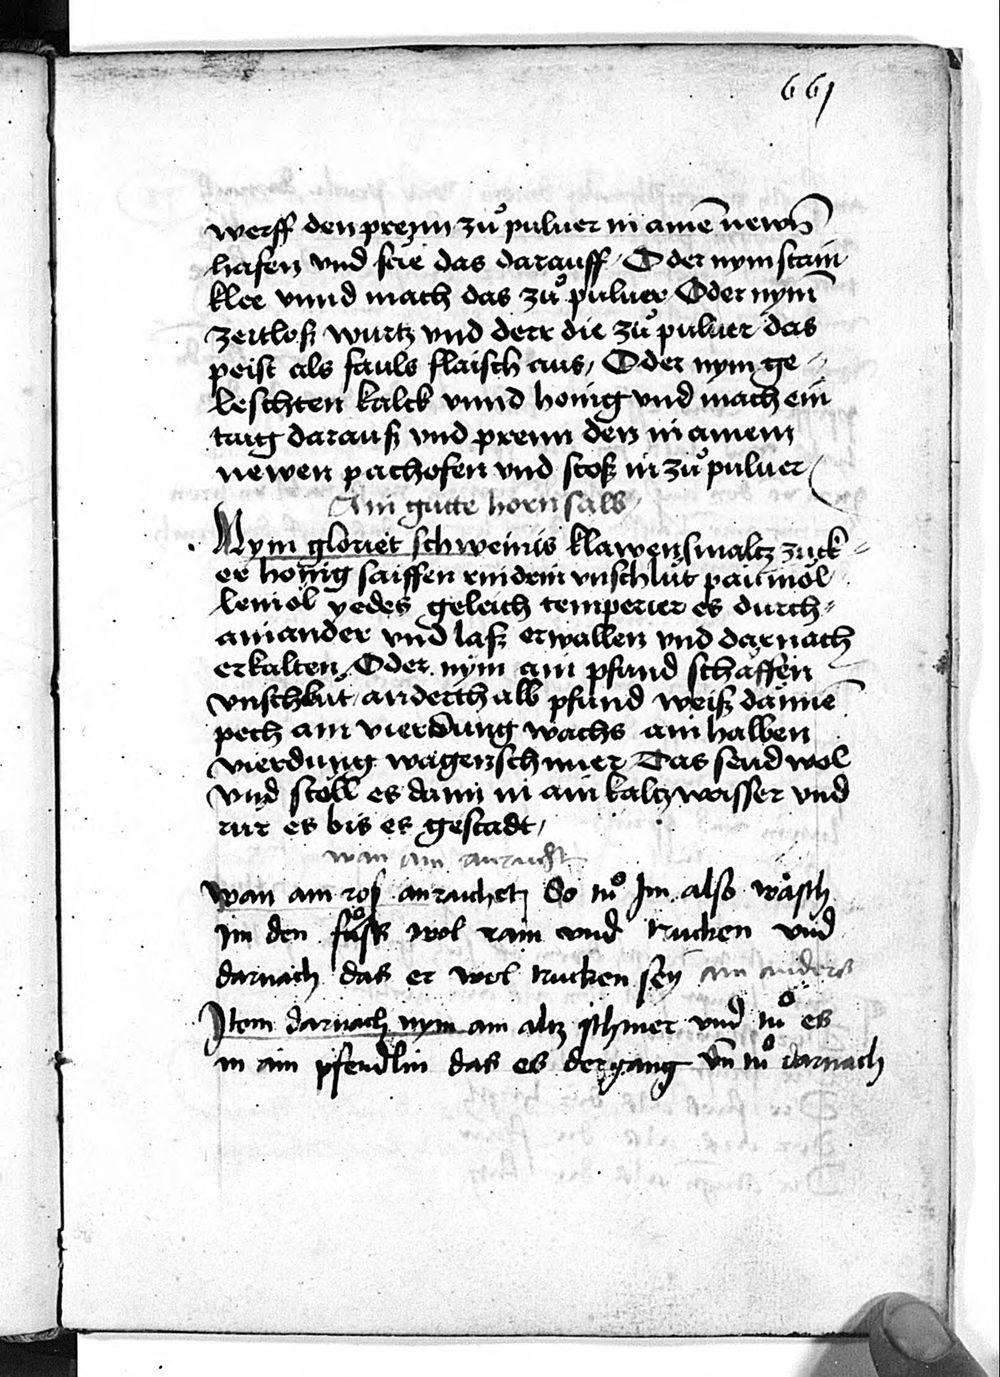 661
werff den prenn zů puluer in ainē newē
hafen vnd säe das darauff / Oder nym stain
klee vnnd mach das zů puluer Oder nym
zeitloß wurtz vnd derr die zů puluer das
peist als fauls flaisch aus, Oder nym ge
leschten kalck vnnd honig vnd mach ein
taig darauß vnd prenn den in ainem
newen pachofen vnd stoß in zů puluer
Ain gutte horn salb
Nym gloriet schweinis klawensmaltz zuck
er honig saiffen rindrin vnschlut paumöl
leinöl yedes geleich temperier es durch
ainander vnd laß erwallen vnd darnach
erkalten / Oder nym ain pfund schaffen
vnschlut anderthalb pfund weiß dännē
pech ain vierdung wachs ain halben
vierdung wagenschmer Das send wol
vnd stöll es dann in ain kaltz wasser vnd
rür es bis es gestadt /
wan ain anrucht
wan ain roß anruchet, so tů Im also wäsch
Im den fůss wol rain vnd trucken vnd
darnach das er wol trucken sey ain anders
Item darnach nym ain altz schmer vnd tů es
in ain pfendlin das es dergang vn̄ tů darnach